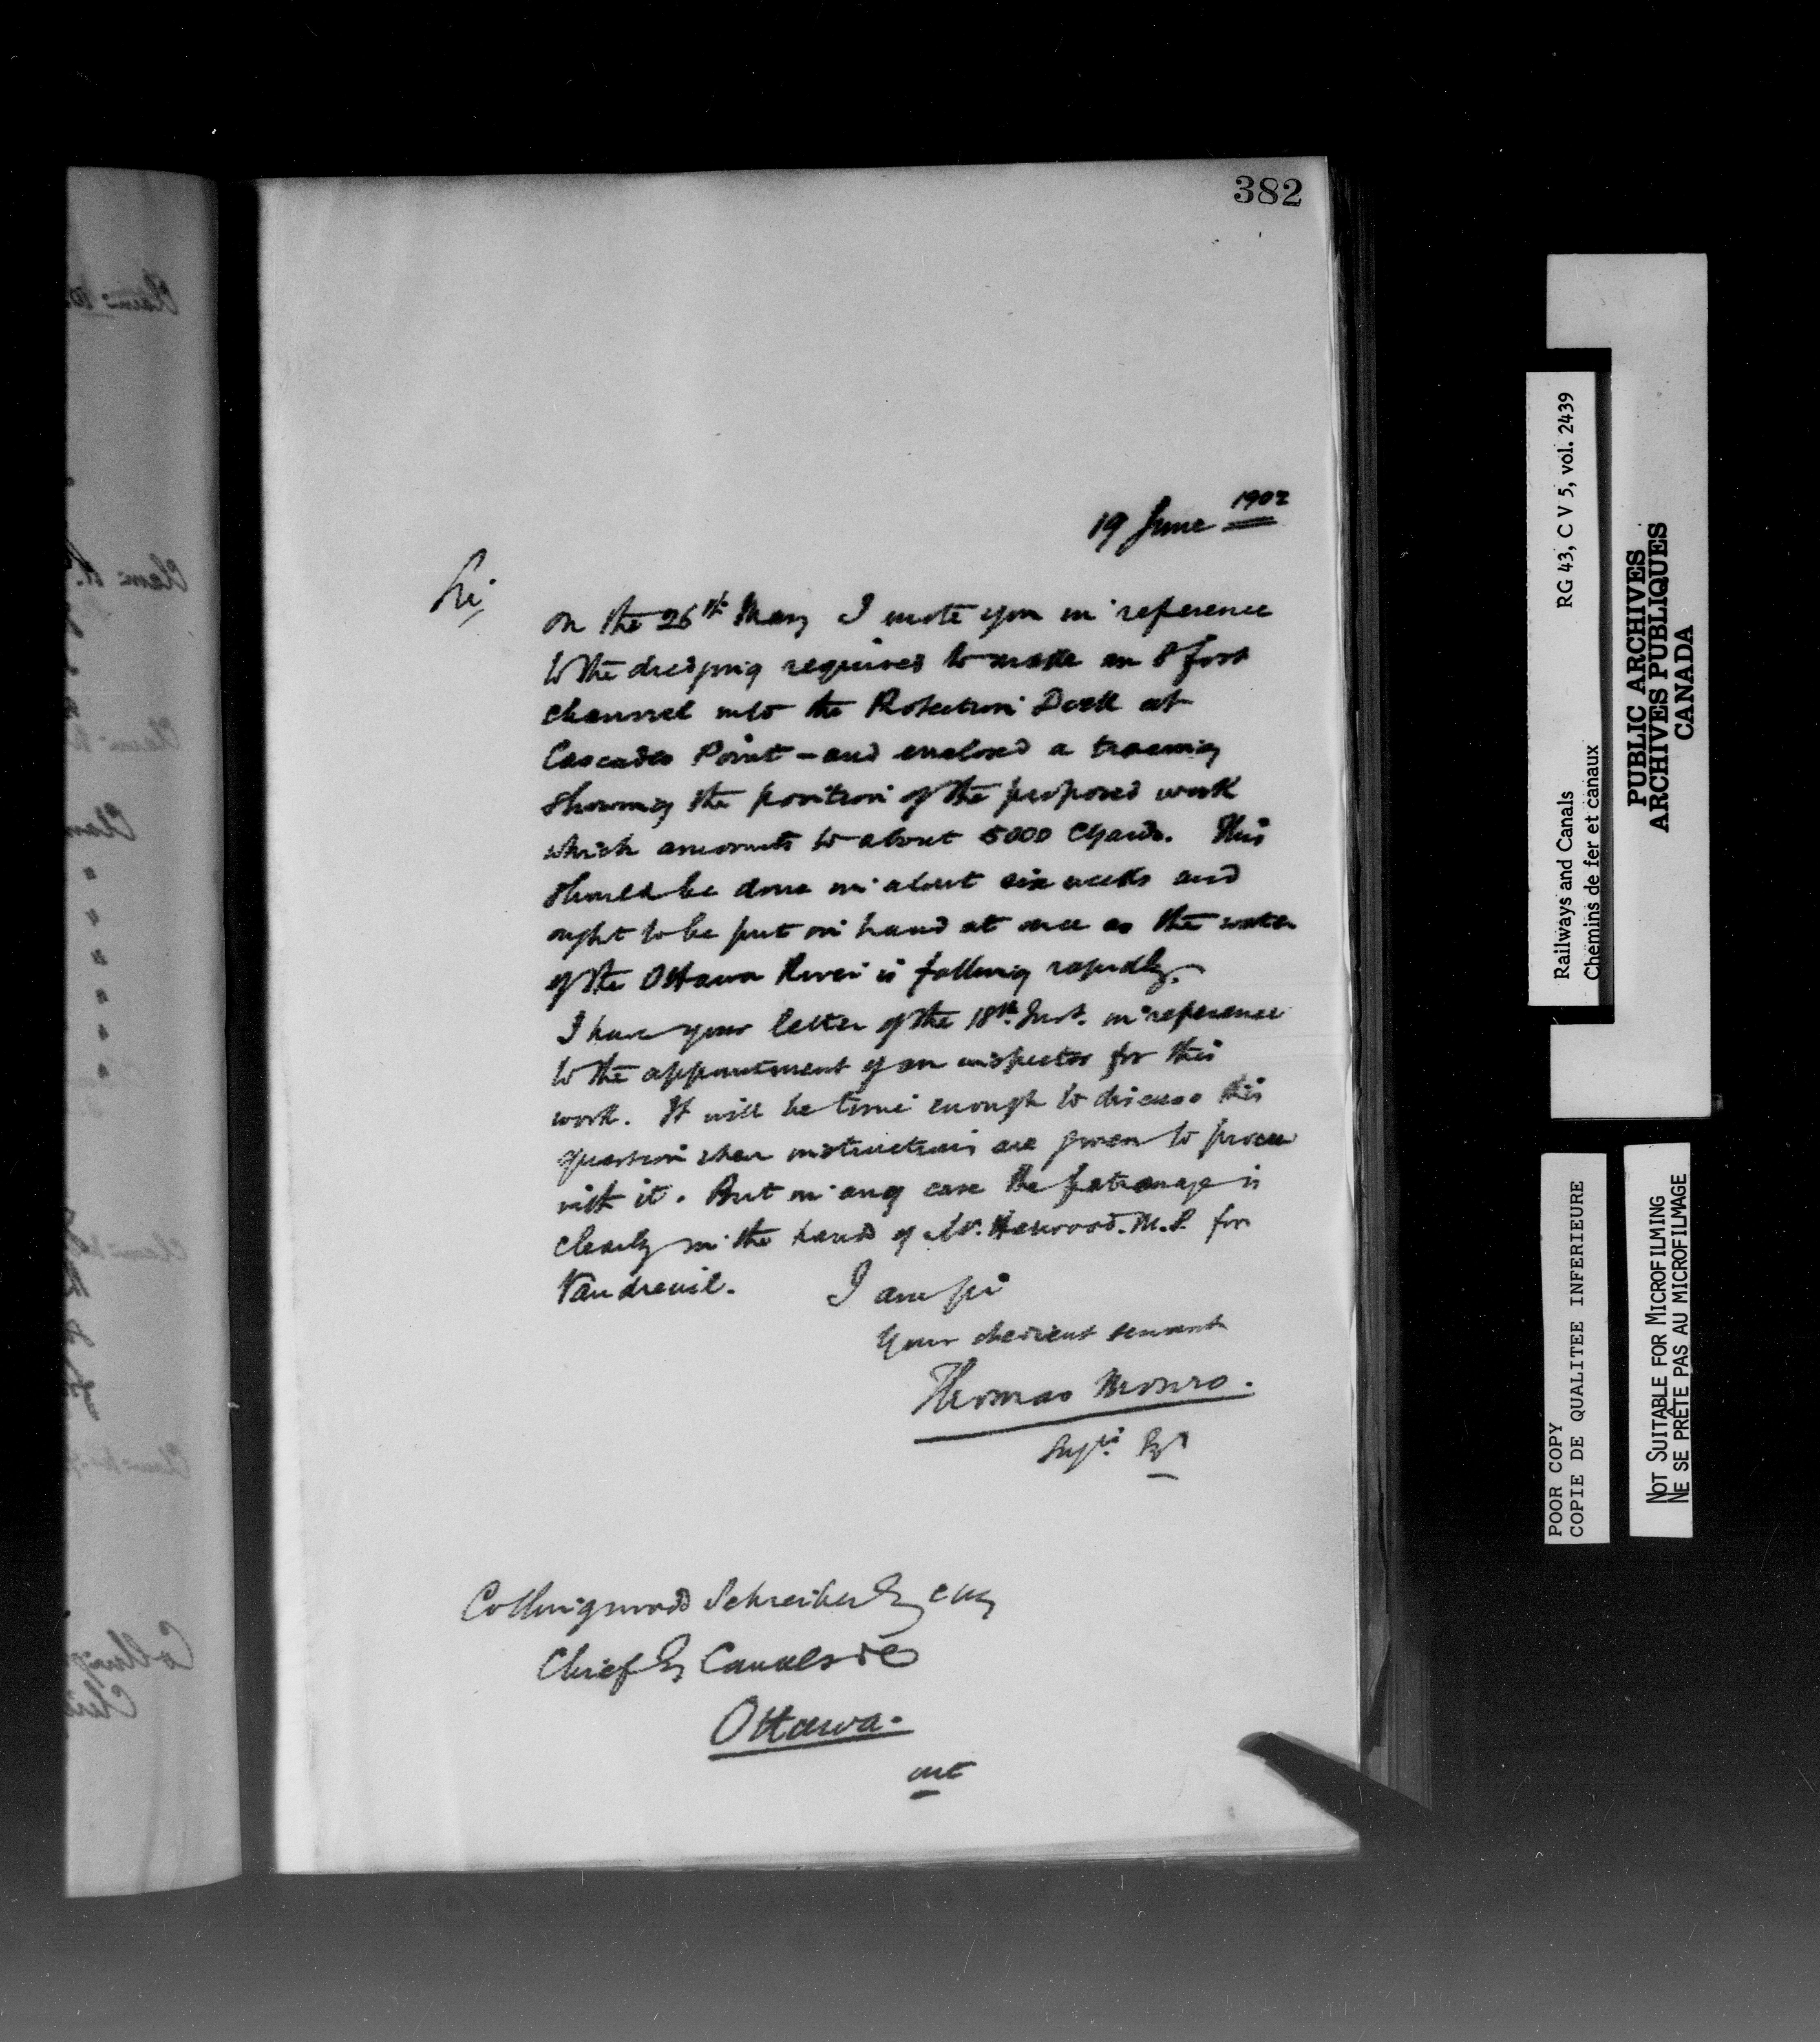 382
19 June 1902
Sir,
On the 26th May I wrote you in reference
to the dredging required to make an 8 foot
channel into the Protection Dock at
Cascades Point - and enclosed a tracing
showing the position of the proposed work
which amounts to about 5000 Cyards. This
should be done in about six weeks and
ought to be put in hand at once as the water
of the Ottawa River is falling rapidly.
I have your letter of the 18th Inst. in reference
to the appointment of an inspector for this
work. It will be time enough to discuss this
question when instructions are given to proceed
with it. But in any case the patronage is
clearly in the hands of Mr. Harwood. M.P. for
Vaudreuil. I am Sir
Your obedient servant
Thomas Monro.
Collingwood Schreiber Esq CMG
Chief Eng Canals &c
Ottawa.
Railways and Canals RG 43, C V 5, vol. 2439
Chemins de fer et canaux
PUBLIC ARCHIVES
ARCHIVES PUBLIQUES
CANADA
POOR COPY
COPIE DE QUALITEE INFERIEURE
NOT SUITABLE FOR MICROFILMING
NE SE PRÊTE PAS AU MICROFILMAGE